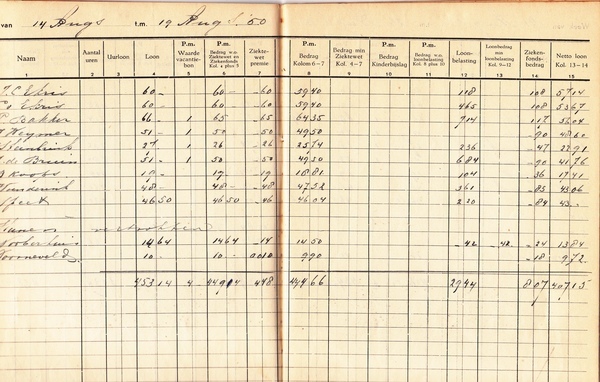 van 14 Augs t.m. 19 Augs. 50
Naam Aantal uren Uurloon Loon P.m. Waarde vacantie-bon P.m. Bedrag v.n. Ziektewet en Ziekenfonds Kolom 4 plus 5 Ziekte-wet premie P.m. Bedrag Kolom 6–7 Bedrag min Ziektewet Kol. 4–7 P.m. Bedrag Kinderbijslag P.m. Bedrag v.n. loonbelasting Kol. 8 plus 10 Loon-belasting Loonbedrag min loonbelasting Kol. 9–12 Zieken-fonds-bedrag Netto loon Kol. 13–14
1 2 3 4 5 6 7 8 9 10 11 12 13 14 15
60 - 60 - -60 59 40 1 18 1 08 57 14
60 - 60 - -60 59 40 4 65 1 08 53 67
Bakker 66 - 1 65 - -65 64 35 7 14 1 17 56 04
Heymer 51 - 1 50 - -50 49 50 -90 48 60
27 1 26 - -26 25 74 2 36 -47 22 91
de Bruin 51 - 1 50 - -50 49 50 6 84 -90 41 76
Koops 19 - 19 - -19 18 81 1 04 -36 17 41
48 - 48 - -48 47 52 3 61 -85 43 06
46 50 46 50 -46 46 04 2 20 -84 43 -
vertrokken
14 64 14 64 -14 14 50 -42 -42 -24 13 84
Doorneveld 10 - 10 - 0 0 10 9 90 -18 9 72
453 14 4 449 14 4 48 444 66 29 44 8 07 407 15